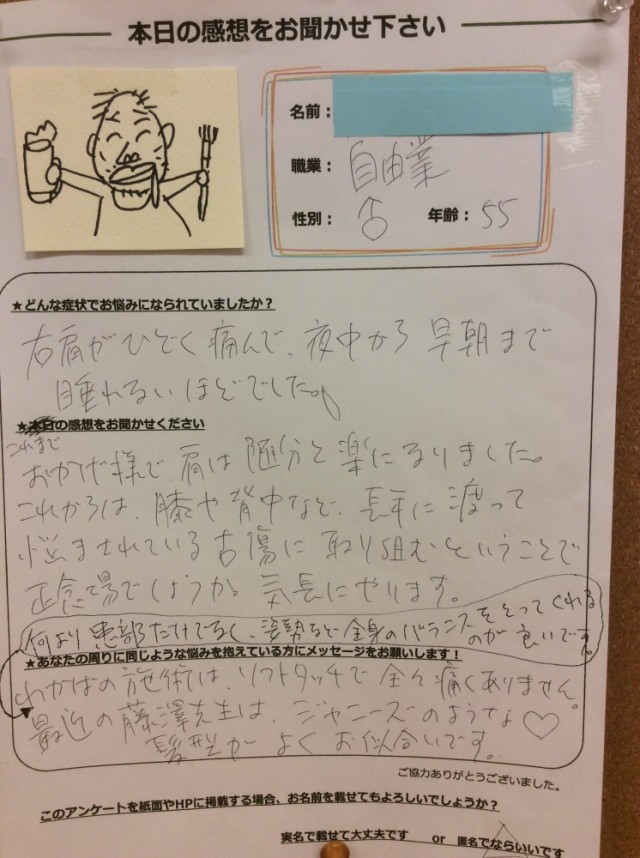 本日の感想をお聞かせ下さい
名前：
職業： 自由業
性別： ♂ 年齢： 55
★どんな症状でお悩みになられていましたか？
右肩がひどく痛んで、夜中から早朝まで
睡れないほどでした。
★本日の感想をお聞かせください
これまで
おかげ様で、肩は随分と楽になりました。
これからは、膝や背中など、長年に渡って
悩まされている古傷に取り組むということで
正念場でしょうか。気長にやります。
何より患部だけでなく、姿勢など全身のバランスをとってくれる
のが良いです。
★あなたの周りに同じような悩みを抱えている方にメッセージをお願いします！
わかばの施術は、ソフトタッチで全々痛くありません。
最近の藤澤先生は、ジャニーズのような♡
髪型がよくお似合いです。
ご協力ありがとうございました。
このアンケートを紙面やHPに掲載する場合、お名前を載せてもよろしいでしょうか？
実名で載せて大丈夫です or 匿名でならいいです